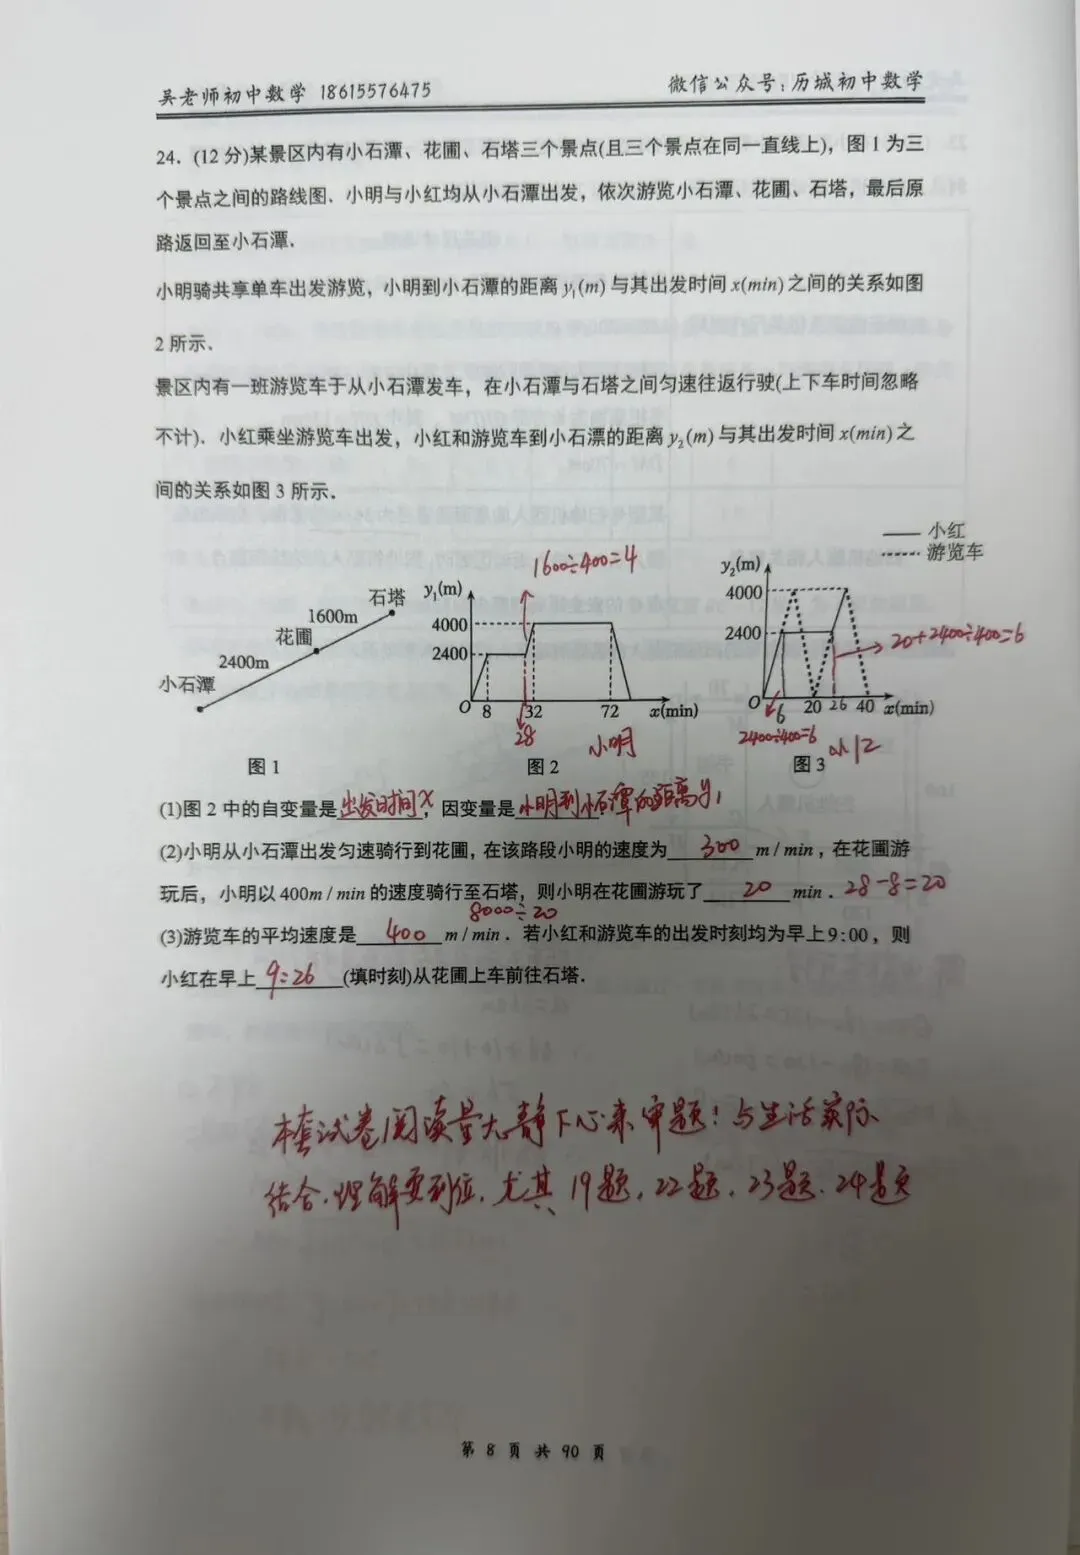 吴老师初中数学 18615576475
微信公众号:历城初中数学
24．(12分)某景区内有小石潭、花圃、石塔三个景点(且三个景点在同一直线上)，图1为三
个景点之间的路线图．小明与小红均从小石潭出发，依次游览小石潭、花圃、石塔，最后原
路返回至小石潭．
小明骑共享单车出发游览，小明到小石潭的距离y₁(m)与其出发时间x(min)之间的关系如图
2所示．
景区内有一班游览车于从小石潭发车，在小石潭与石塔之间匀速往返行驶(上下车时间忽略
不计)．小红乘坐游览车出发，小红和游览车到小石漂的距离y₂(m)与其出发时间x(min)之
间的关系如图3所示．
石塔
1600m
花圃
2400m
小石潭
图1
1600÷400=4
y₁(m)
4000
2400
O 8 32 72 x(min)
28
小明
图2
小红
游览车
y₂(m)
4000
2400
20+2400÷400=6
O 6 20 26 40 x(min)
2400÷400=6
小红
图3
(1)图2中的自变量是出发时间x，因变量是小明到小石潭的距离y₁
(2)小明从小石潭出发匀速骑行到花圃，在该路段小明的速度为 300 m/min，在花圃游
玩后，小明以400m/min的速度骑行至石塔，则小明在花圃游玩了 20 min．28-8=20
8000÷20
(3)游览车的平均速度是 400 m/min．若小红和游览车的出发时刻均为早上9:00，则
小红在早上 9:26 (填时刻)从花圃上车前往石塔．
本套试卷阅读量大，静下心来审题！与生活实际
结合，理解要到位，尤其19题，22题，23题、24题
第 8 页 共 90 页